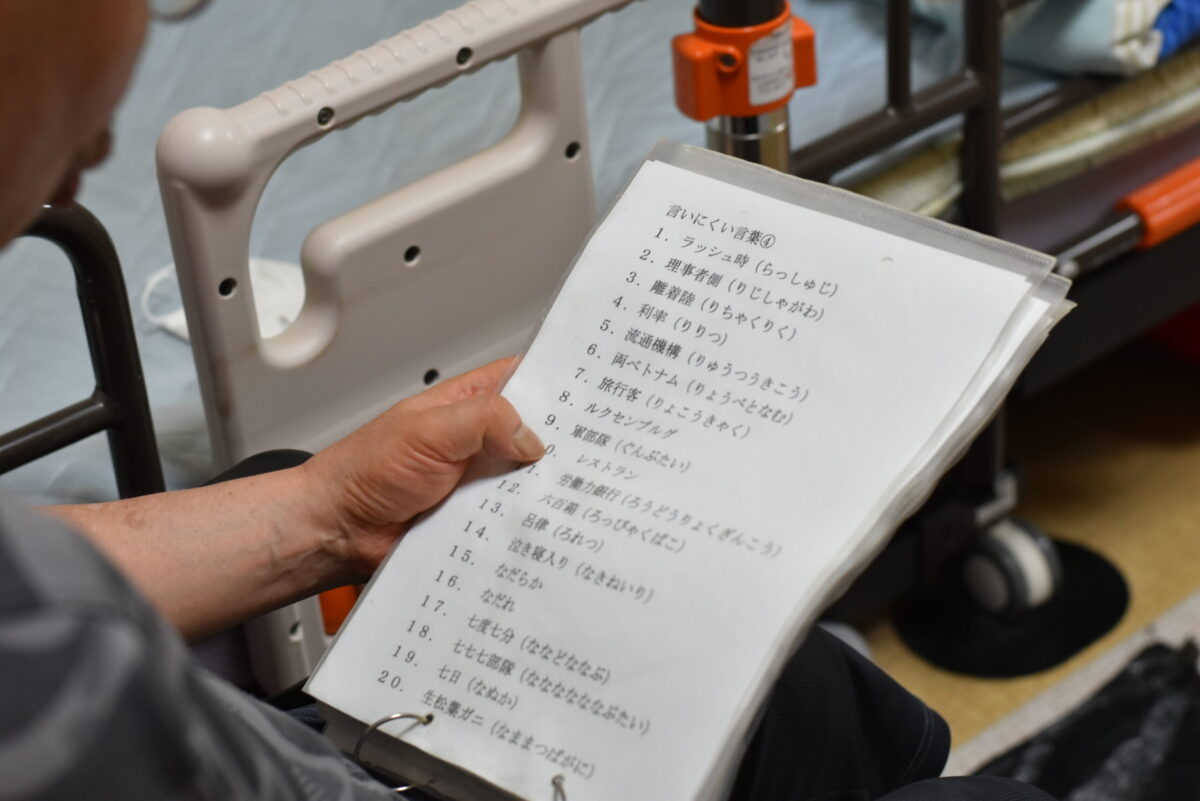 言いにくい言葉④
1. ラッシュ時（らっしゅじ）
2. 理事者側（りじしゃがわ）
3. 離着陸（りちゃくりく）
4. 利率（りりつ）
5. 流通機構（りゅうつうきこう）
6. 両ベトナム（りょうべとなむ）
7. 旅行客（りょこうきゃく）
8. ルクセンブルグ
9. 軍部隊（ぐんぶたい）
0. レストラン
1. 労働力銀行（ろうどうりょくぎんこう）
12. 六百箱（ろっぴゃくばこ）
13. 呂律（ろれつ）
14. 泣き寝入り（なきねいり）
15. なだらか
16. なだれ
17. 七度七分（ななどななぶ）
18. 七七七部隊（ななななななぶたい）
19. 七日（なぬか）
20. 生松葉ガニ（なままつばがに）